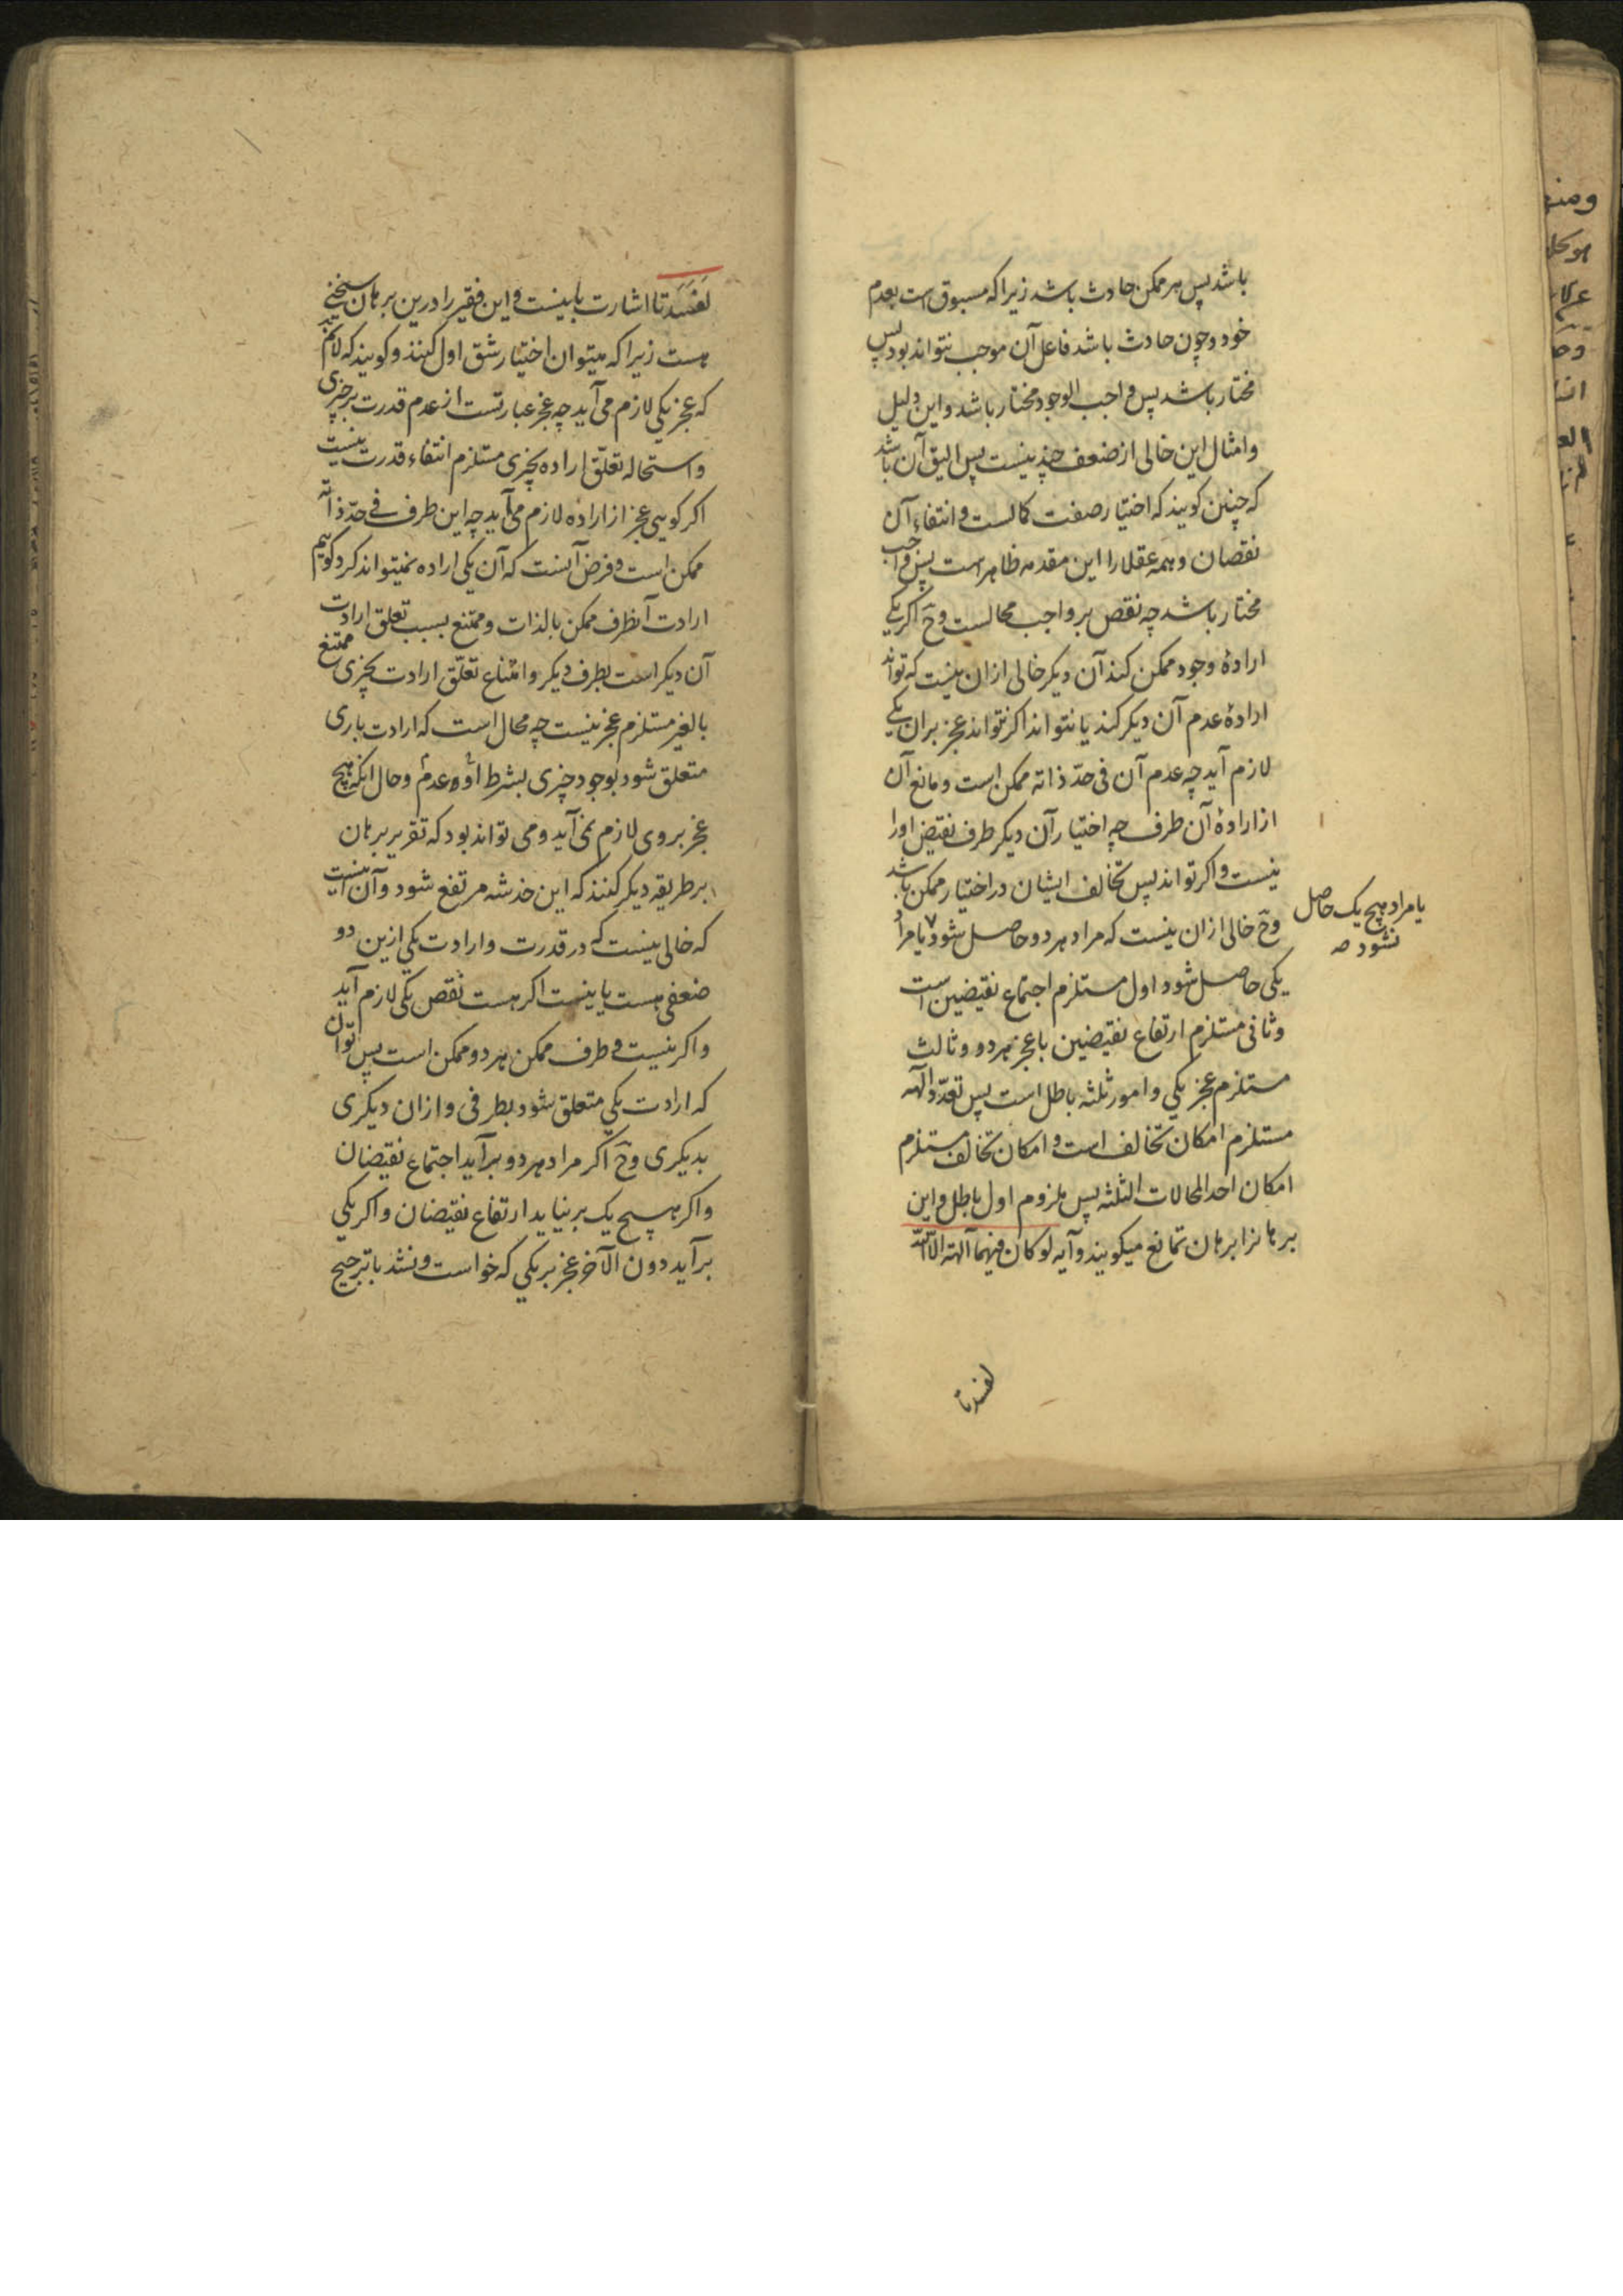 باشد پس هر ممکن حادث باشد زیرا که مسبوق است بعدم
خود و چون حادث باشد فاعل آن موجب نتواند بود پس
مختار باشد پس واجب الوجود مختار باشد و این دلیل
و امثال این خالی از ضعف چند نیست پس الیق آن باشد
که چنین کویند که اختیار صفت کمالست و انتفاء آن
نقصان و همه عقلا را این مقدمه ظاهر است پس واجب
مختار باشد چه نقص بر واجب محالست وح اکر یکی
ارادۀ وجود ممکن کند آن دیکر خالی ازان نیست که تواند
ارادۀ عدم آن دیکر کند یا نتواند اکر نتواند عجز بران یکی
لازم آید چه عدم آن فی حدّ ذاته ممکن است و مانع آن
از ارادۀ آن طرف چه اختیار آن دیکر طرف نقیض اورا
نیست و اکر تواند پس تخالف ایشان در اختیار ممکن باشد
وح خالی ازان نیست که مراد هر دو حاصل شود یا مراد
یا مراد هیچ یک حاصل
نشود صه
یکی حاصل شود اول مستلزم اجتماع نقیضین است
و ثانی مستلزم ارتفاع نقیضین با عجز هر دو و ثالث
مستلزم عجز یکی و امور ثلثه باطل است پس تعدّد آلهه
مستلزم امکان تخالف است و امکان تخالف مستلزم
امکان احد المحالات الثلثه پس ملزوم اول باطل و این
برهانرا برهان تمانع میکویند و آیه لو کان فیهما آلهة الا الله
لفسدتا
لَفَسَدَتا اشارت باینست و این فقیر را درین برهان سخنی
هست زیرا که میتوان اختیار شق اول کنند و کویند که لانم
که عجز یکی لازم می آید چه عجز عبارتست از عدم قدرت بر چیزی
و استحاله تعلّق اراده بچیزی مستلزم انتفاء قدرت نیست
اکر کویی عجز از اراده لازم می آید چه این طرف فی حدّ ذاته
ممکن است و فرض آنست که آن یکی اراده نمیتواند کرد کوییم
ارادت آنطرف ممکن بالذات و ممتنع بسبب تعلق ارادت
آن دیکر است بطرف دیکر و امتناع تعلّق ارادت بچیزی ممتنع
بالغیر مستلزم عجز نیست چه محال است که ارادت باری
متعلق شود بوجود چیزی بشرط عدم و حال انکه هیچ
عجز بر وی لازم نمی آید و می تواند بود که تقریر برهان
بر طریقه دیکر کنند که این خدشه مرتفع شود و آن اینست
که خالی نیست که در قدرت و ارادت یکی ازین دو
ضعفی هست یا نیست اکر هست نقص یکی لازم آید
و اکر نیست و طرف ممکن هر دو ممکن است پس توان
که ارادت یکی متعلق شود بطرفی و ازان دیکری
بدیکری وح اکر مراد هر دو برآید اجتماع نقیضان
و اکر هیچ یک برنیاید ارتفاع نقیضان و اکر یکی
برآید دون الآخر عجز بر یکی که خواست و نشد با ترجیح